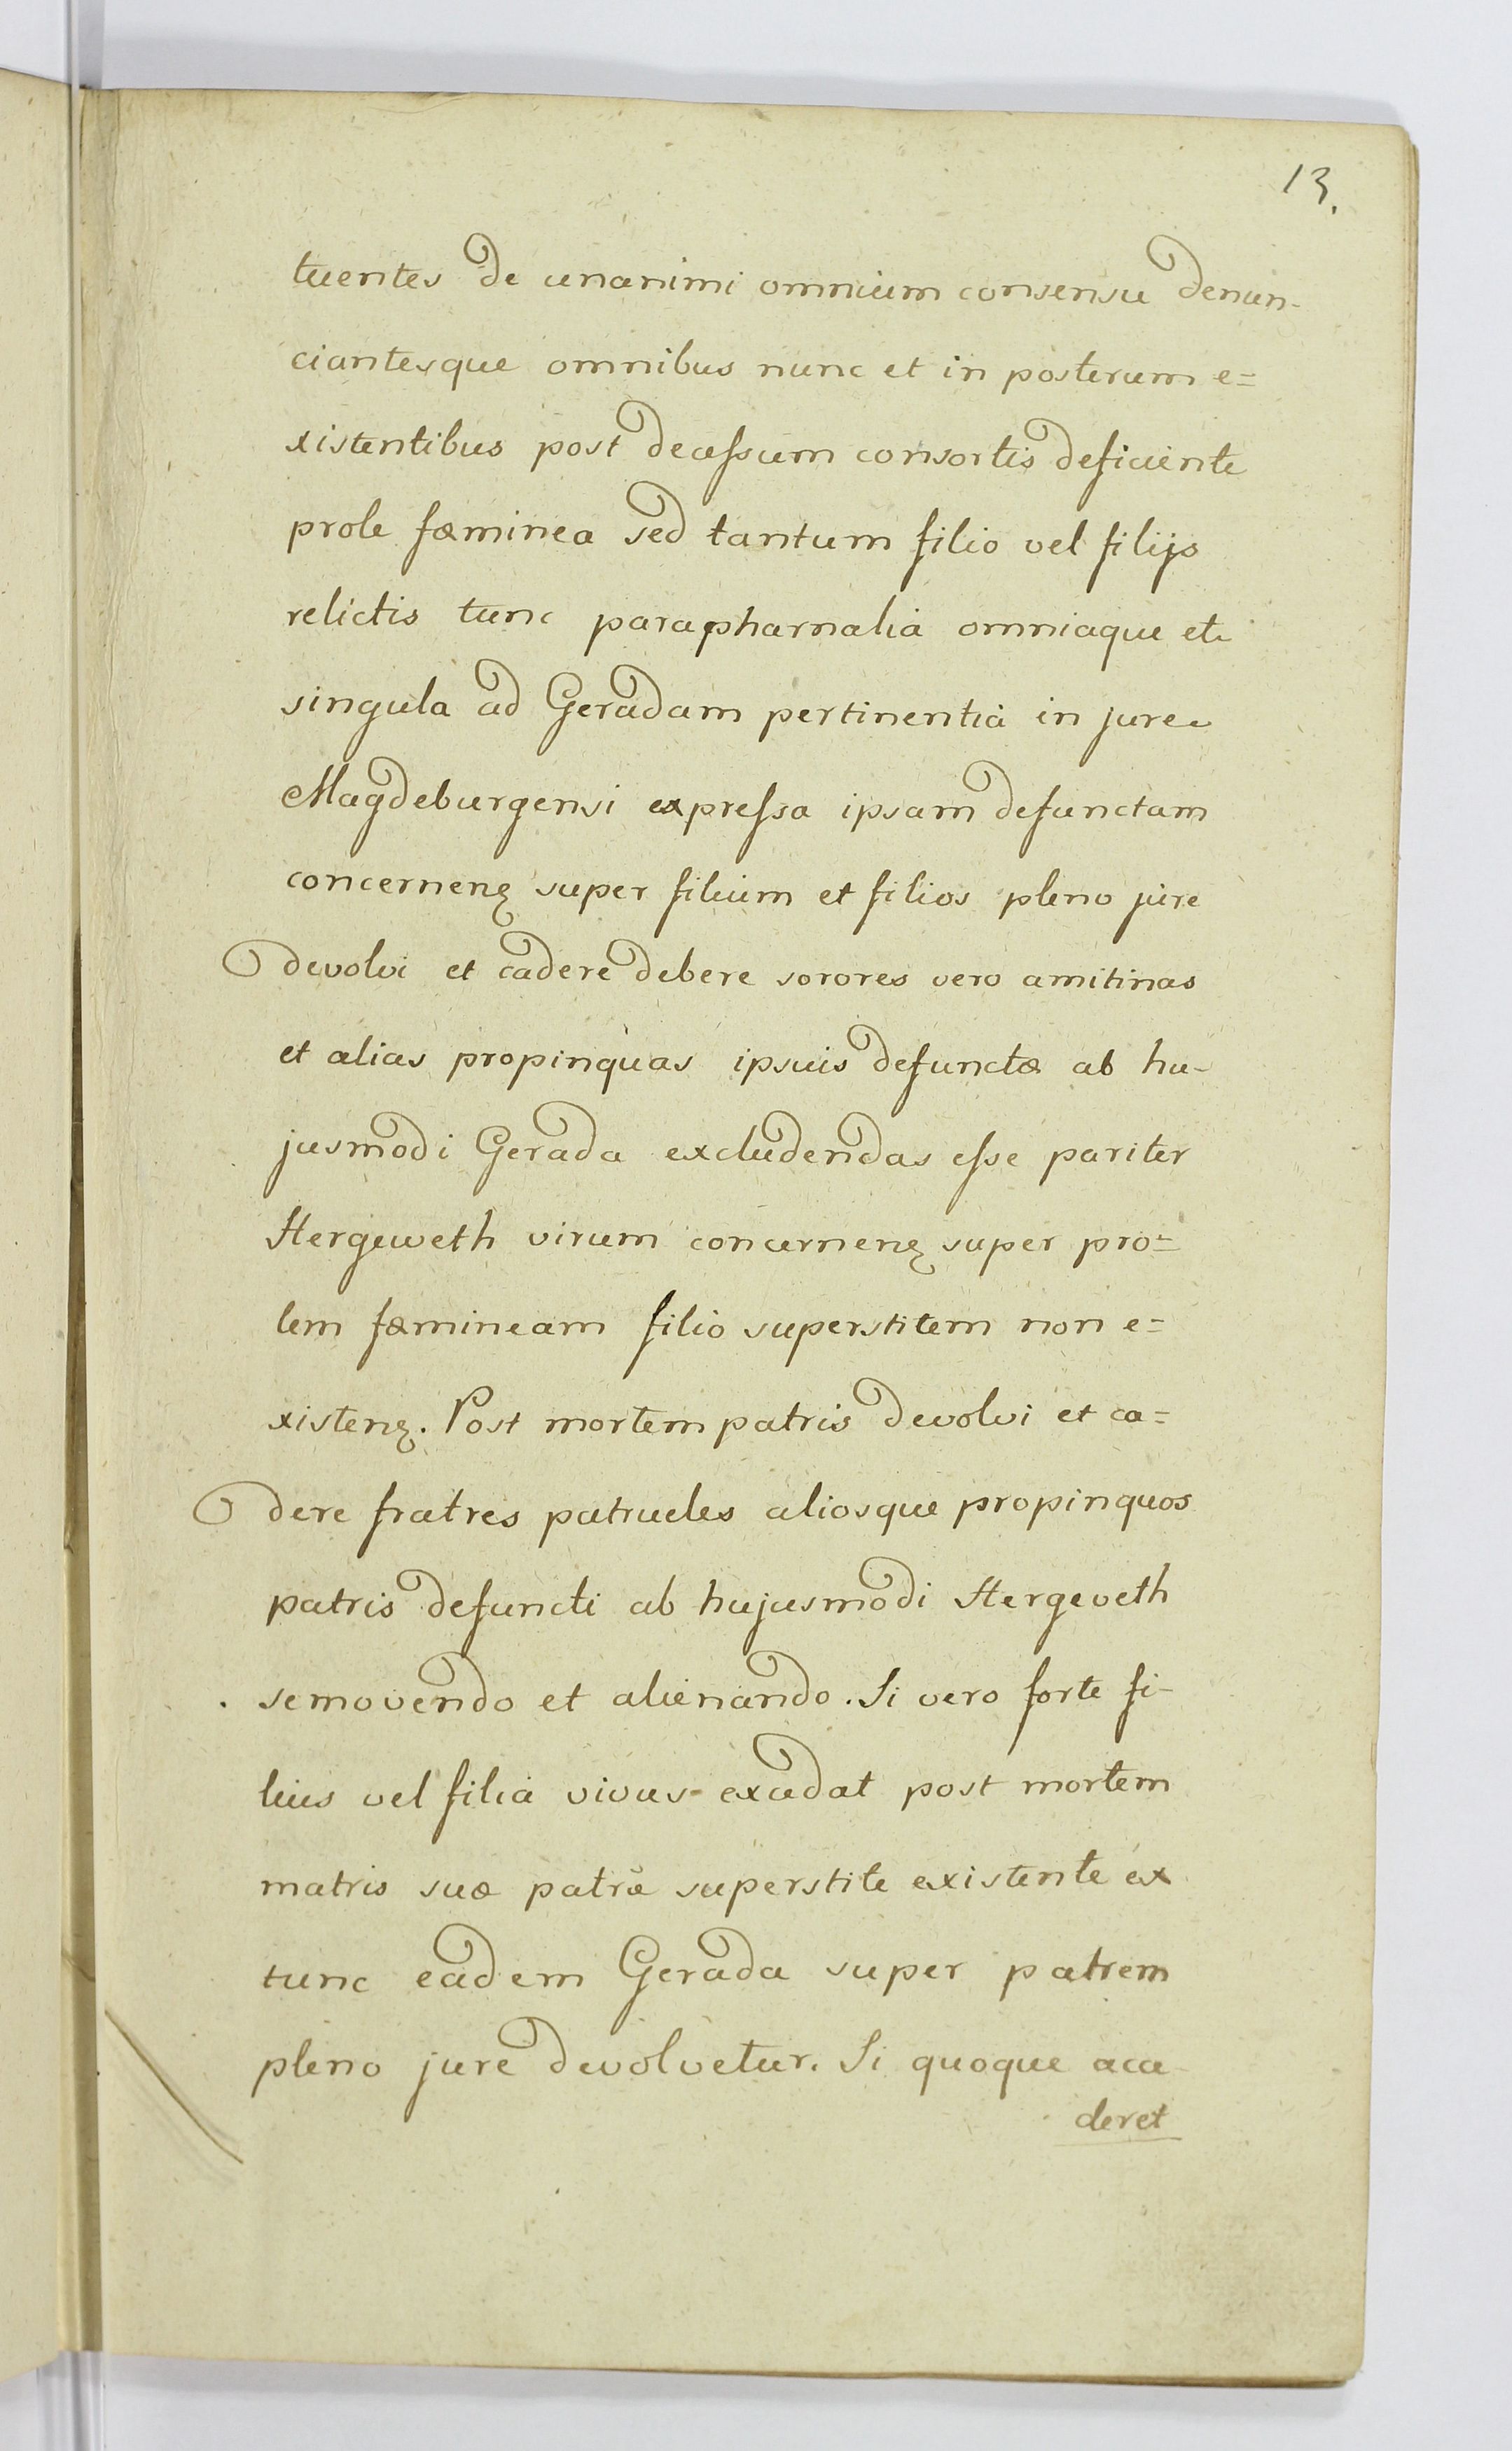 13.
tuentes de unanimi omnium consensu denun-
ciantesque omnibus nunc et in posterum e=
xistentibus post decessum consortis deficiente
prole fæminea sed tantum filio vel filijs
relictis tunc parapharnalia omniaque et
singula ad Geradam pertinentia in jure
Magdeburgensi expressa ipsam defunctam
concernenꝫ super filium et filios pleno jure
devolvi et cadere debere sorores vero amitinas
et alias propinquas ipsuis defunctæ ab hu-
jusmodi Gerada excludendas esse pariter
Hergeweth virum concernenꝫ super pro=
lem fæmineam filio superstitem non e=
xistenꝫ. Post mortem patris devolvi et ca=
dere fratres patrueles aliosque propinquos
patris defuncti ab hujusmodi Hergeveth
semovendo et alienando. Si vero forte fi-
lius vel filia vivus excedat post mortem
matris suæ patre superstite existente ex
tunc eadem Gerada super patrem
pleno jure devolvetur. Si quoque acce
deret